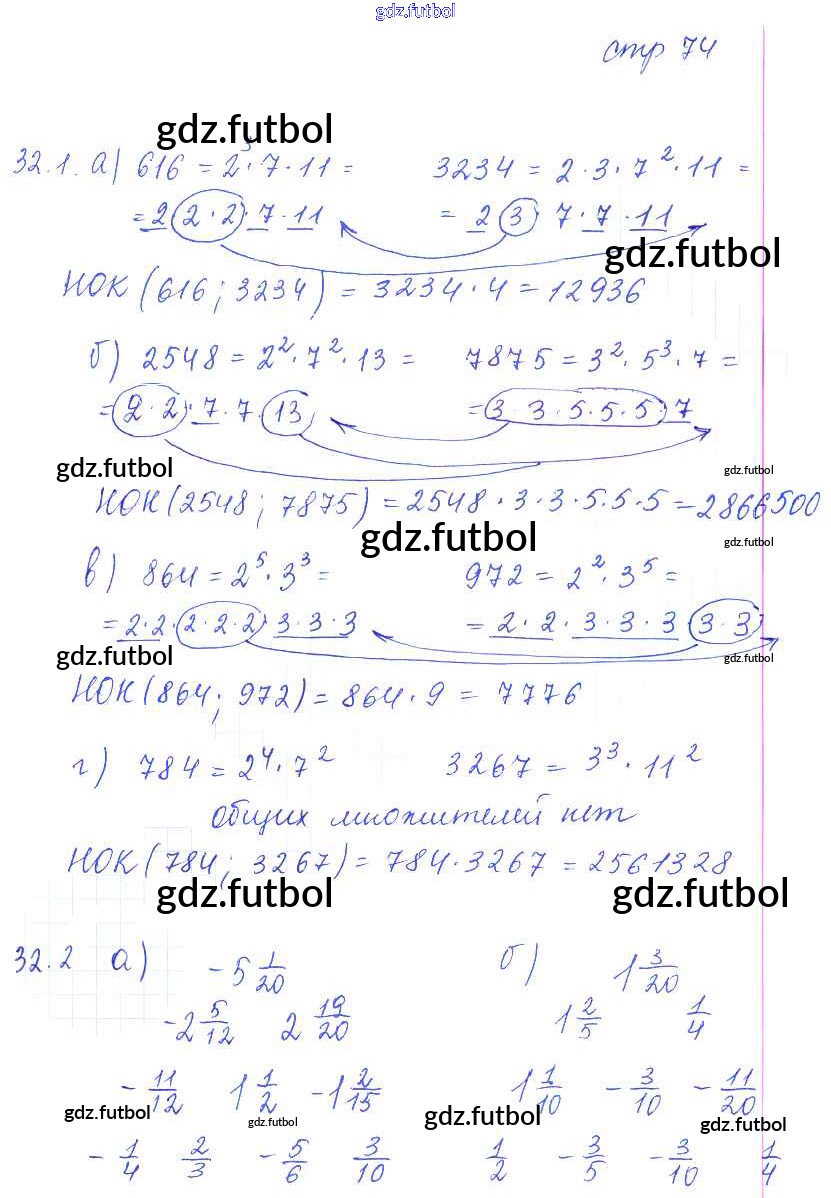 gdz.futbol
стр 74
gdz.futbol
32.1. а) 616 = 2³·7·11 = 3234 = 2·3·7²·11 =
= 2 (2·2)·7·11 = 2 (3) 7·7·11
gdz.futbol
НОК (616; 3234) = 3234·4 = 12936
б) 2548 = 2²·7²·13 = 7875 = 3²·5³·7 =
= (2·2)·7·7·(13) = (3·3·5·5·5)·7
gdz.futbol gdz.futbol
НОК (2548; 7875) = 2548·3·3·5·5·5 = 2866500
gdz.futbol gdz.futbol
в) 864 = 2⁵·3³ = 972 = 2²·3⁵ =
= 2·2·(2·2·2)·3·3·3 = 2·2·3·3·3·(3·3)
gdz.futbol gdz.futbol
НОК (864; 972) = 864·9 = 7776
г) 784 = 2⁴·7² 3267 = 3³·11²
общих множителей нет
НОК (784; 3267) = 784·3267 = 2561328
gdz.futbol gdz.futbol
32.2 а) -5 1/20 б) 1 3/20
-2 5/12 2 19/20 1 2/5 1/4
-11/12 1 1/2 -1 2/15 1 1/10 -3/10 -11/20
gdz.futbol gdz.futbol gdz.futbol gdz.futbol
-1/4 2/3 -5/6 3/10 1/2 -3/5 -3/10 1/4